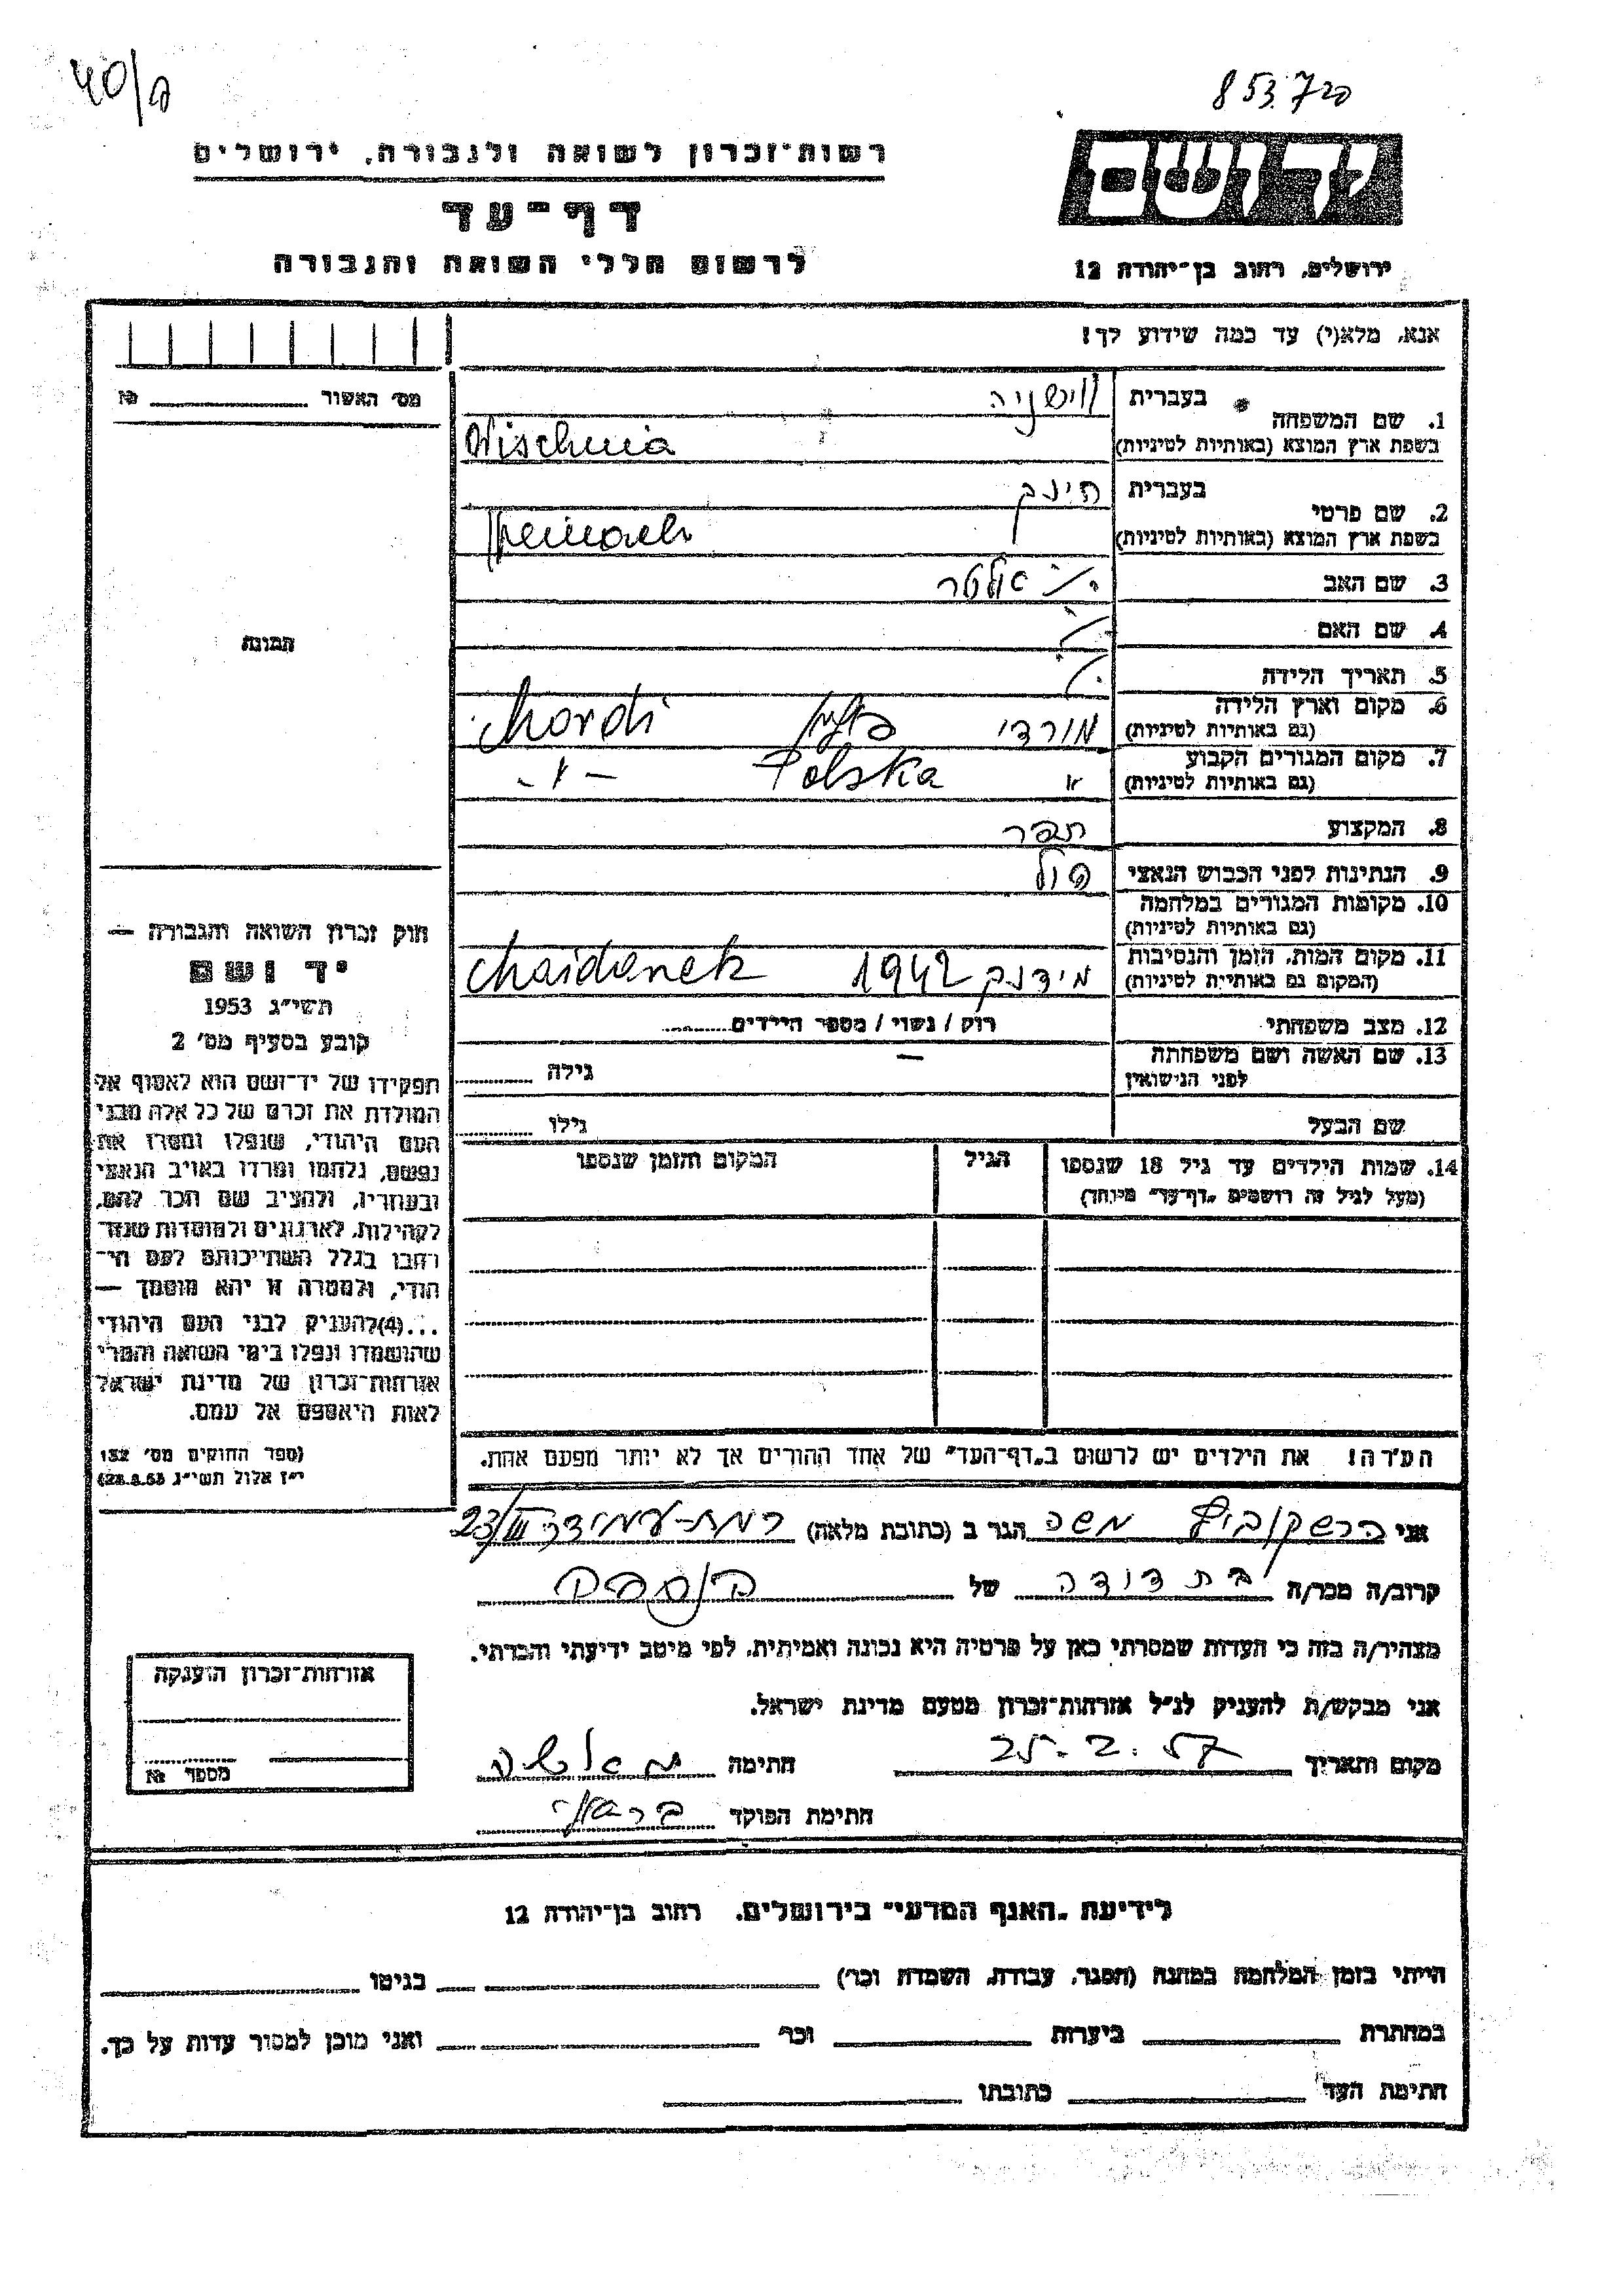 40/ם
853720
רשות־זכרון לשואה ולגבורה, ירושלים
יד ושם
דף־עד
לרשום חללי השואה והגבורה
ירושלים, רחוב בן־יהודה 12
אנא, מלא(י) עד כמה שידוע לך!
מס׳ האשור №
1. שם המשפחה
בעברית ווישניה
בשפת ארץ המוצא (באותיות לטיניות) Wischnia
2. שם פרטי
בעברית הינך
בשפת ארץ המוצא (באותיות לטיניות)
3. שם האב אלטר
4. שם האם
5. תאריך הלידה
6. מקום וארץ הלידה
(גם באותיות לטיניות) מורדי פולין Mordi
7. מקום המגורים הקבוע
(גם באותיות לטיניות) Polska
8. המקצוע תפר
9. הנתינות לפני הכבוש הנאצי פול
10. מקומות המגורים במלחמה
(גם באותיות לטיניות)
11. מקום המות, הזמן והנסיבות
(המקום גם באותיות לטיניות) מידנק 1942 Maidanek
12. מצב משפחתי רוק / נשוי / מספר הילדים
13. שם האשה ושם משפחתה
לפני הנישואין — גילה
שם הבעל גילו
תמונת
14. שמות הילדים עד גיל 18 שנספו
(מעל לגיל זה רושמים „דף־עד״ מיוחד)
הגיל
המקום והזמן שנספו
חוק זכרון השואה והגבורה —
יד ושם
תשי״ג 1953
קובע בסעיף מס׳ 2
תפקידו של יד־ושם הוא לאסוף אל
המולדת את זכרם של כל אלה מבני
העם היהודי, שנפלו ומסרו את
נפשם, נלחמו ומרדו באויב הנאצי
ובעוזריו, ולהציב שם וזכר להם,
לקהילות, לארגונים ולמוסדות שנח־
רבו בגלל השתייכותם לעם הי־
הודי, ולמטרה זו יהא מוסמך —
...(4) להעניק לבני העם היהודי
שהושמדו ונפלו בימי השואה והמרי
אזרחות־זכרון של מדינת ישראל
לאות היאספם אל עמם.
(ספר החוקים מס׳ 132
י״ז אלול תשי״ג 28.8.53)
הערה! את הילדים יש לרשום ב„דף־העד״ של אחד ההורים אך לא יותר מפעם אחת.
אני הרשקוביץ משה הגר ב (כתובת מלאה) רמת-עמידר 23/III
קרוב/ה מכר/ה בת דודה של
מצהיר/ה בזה כי העדות שמסרתי כאן על פרטיה היא נכונה ואמיתית, לפי מיטב ידיעתי והכרתי.
אני מבקש/ת להעניק לנ״ל אזרחות־זכרון מטעם מדינת ישראל.
מקום ותאריך 25.2.57 חתימה
חתימת הפוקד
אזרחות־זכרון הוענקה
מספר №
לידיעת „האגף המדעי״ בירושלים, רחוב בן־יהודה 12
הייתי בזמן המלחמה במחנה (הסגר, עבודה, השמדה וכו׳) בגיטו
במחתרת ביערות וכו׳ ואני מוכן למסור עדות על כך.
חתימת העד כתובתו